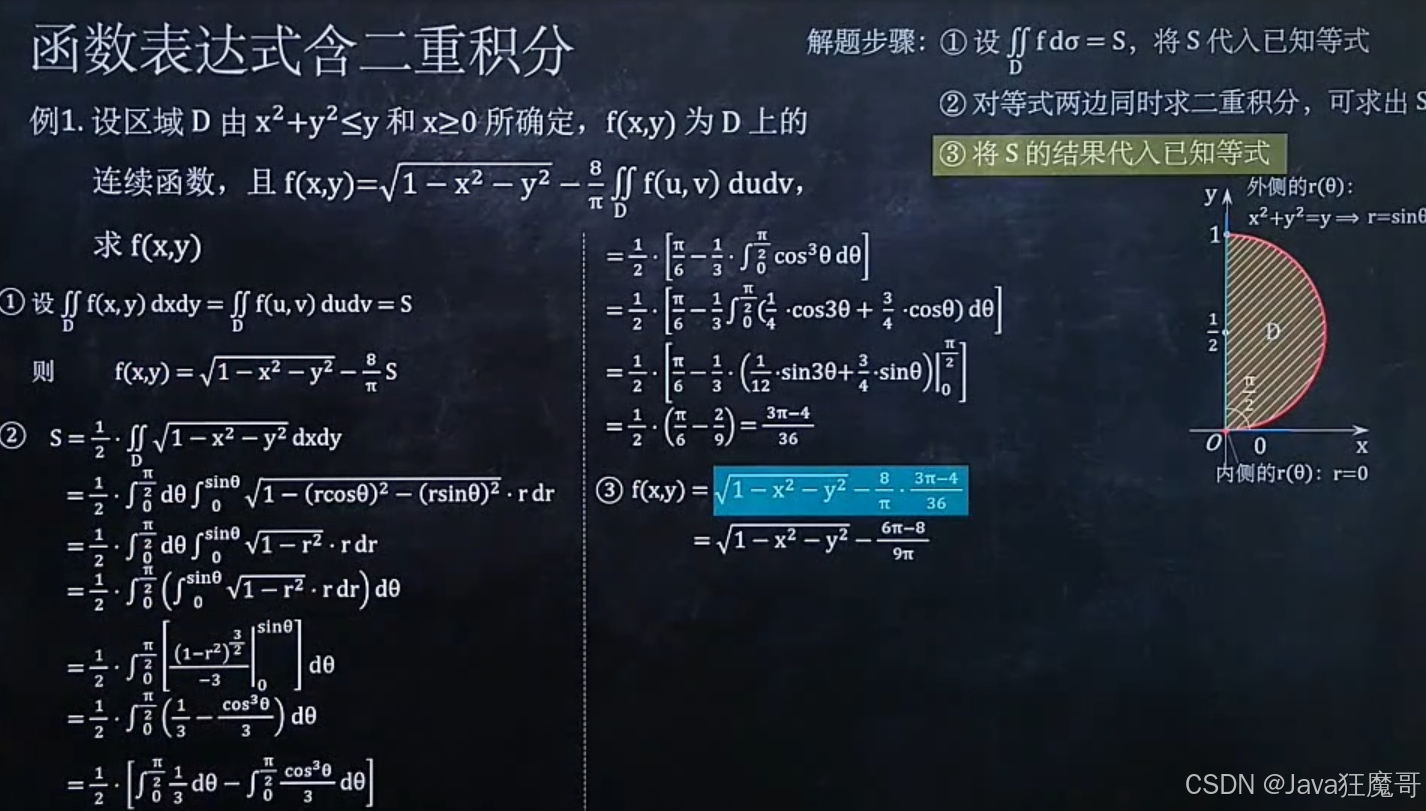 函数表达式含二重积分
解题步骤：① 设 ∬_D f dσ = S，将 S 代入已知等式
② 对等式两边同时求二重积分，可求出 S
③ 将 S 的结果代入已知等式
例1. 设区域 D 由 x²+y²≤y 和 x≥0 所确定，f(x,y) 为 D 上的
连续函数，且 f(x,y)=√(1−x²−y²) − 8/π ∬_D f(u,v) dudv，
求 f(x,y)
① 设 ∬_D f(x,y) dxdy = ∬_D f(u,v) dudv = S
则 f(x,y) = √(1−x²−y²) − 8/π S
② S = 1/2 · ∬_D √(1−x²−y²) dxdy
= 1/2 · ∫_0^{π/2} dθ ∫_0^{sinθ} √(1−(rcosθ)²−(rsinθ)²) · r dr
= 1/2 · ∫_0^{π/2} dθ ∫_0^{sinθ} √(1−r²) · r dr
= 1/2 · ∫_0^{π/2} (∫_0^{sinθ} √(1−r²) · r dr) dθ
= 1/2 · ∫_0^{π/2} [(1−r²)^{3/2}/−3 |_0^{sinθ}] dθ
= 1/2 · ∫_0^{π/2} (1/3 − cos³θ/3) dθ
= 1/2 · [∫_0^{π/2} 1/3 dθ − ∫_0^{π/2} cos³θ/3 dθ]
= 1/2 · [π/6 − 1/3 · ∫_0^{π/2} cos³θ dθ]
= 1/2 · [π/6 − 1/3 ∫_0^{π/2} (1/4 · cos3θ + 3/4 · cosθ) dθ]
= 1/2 · [π/6 − 1/3 · (1/12 · sin3θ + 3/4 · sinθ)|_0^{π/2}]
= 1/2 · (π/6 − 2/9) = 3π−4/36
③ f(x,y) = √(1−x²−y²) − 8/π · 3π−4/36
= √(1−x²−y²) − 6π−8/9π
y 外侧的r(θ)：
x²+y²=y ⟹ r=sinθ
1
1/2
D
π/2
O 0 x
内侧的r(θ)：r=0
CSDN @Java狂魔哥